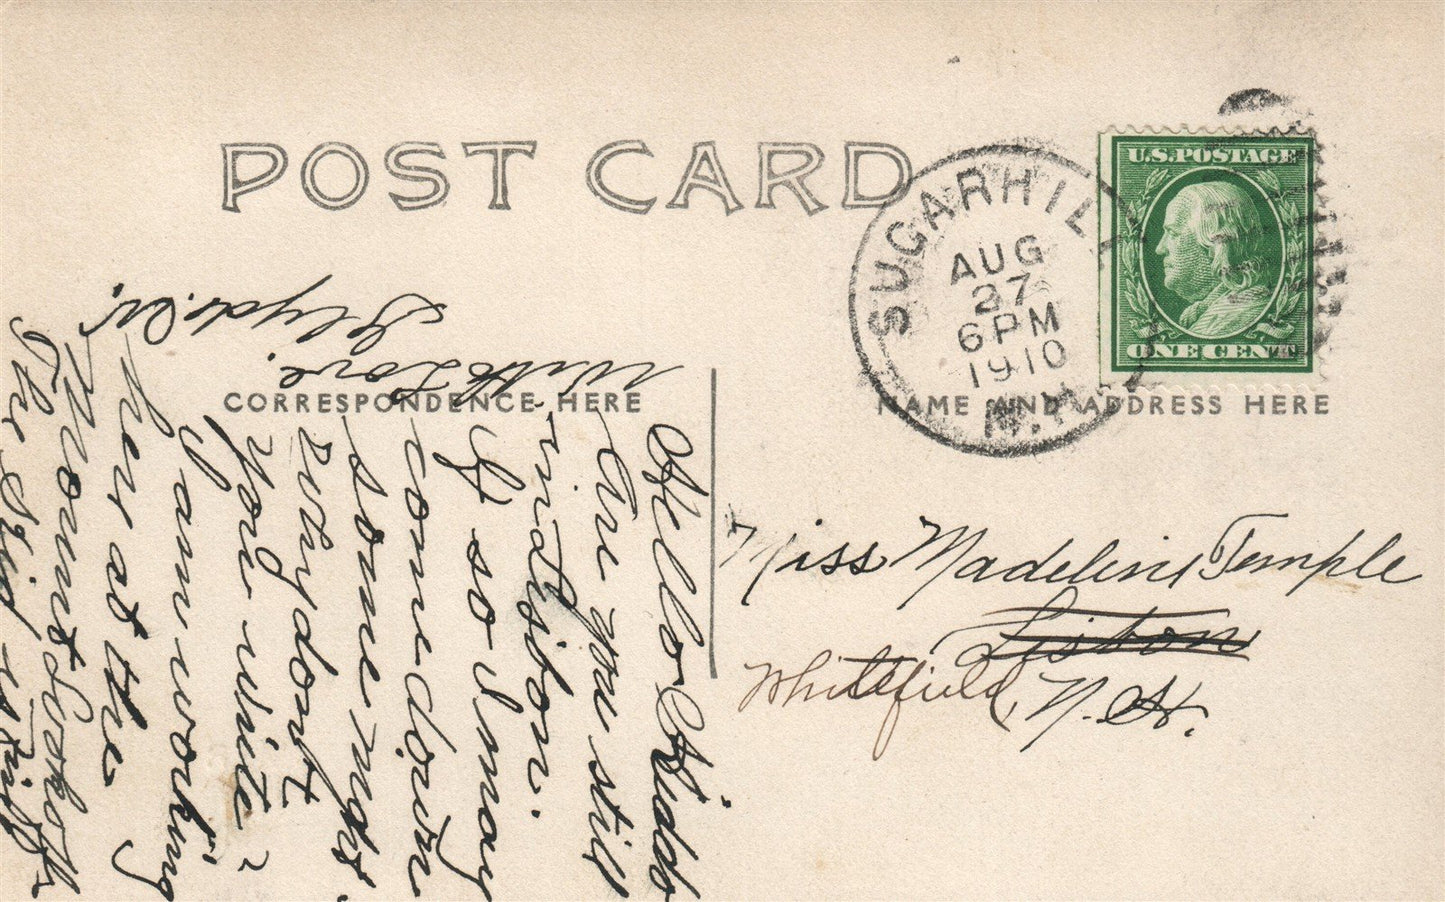 POST CARD
CORRESPONDENCE HERE
NAME AND ADDRESS HERE
SUGAR HILL
AUG
27
6 PM
1910
N.H.
U.S. POSTAGE
ONE CENT
Miss Madeline Temple
Lisbon
Whitefield, N. H.
Hello Kiddo
Are you still
in Lisbon.
If so I may
come down
some night.
Why dont
you write?
I am working
her at the
The
With Love.
Clyde. W.